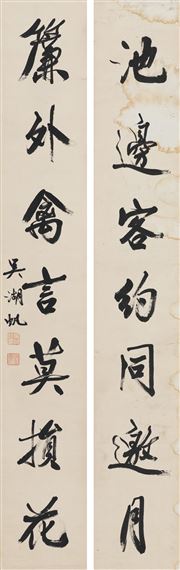 池邊客約同邀月
簾外禽言莫損花
吳湖帆